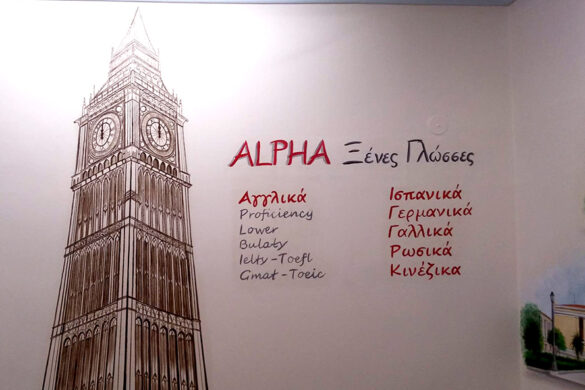 ALPHA Ξένες Γλώσσες
Αγγλικά
Proficiency
Lower
Bulaty
Ielty-Toefl
Gmat-Toeic
Ισπανικά
Γερμανικά
Γαλλικά
Ρωσικά
Κινέζικα